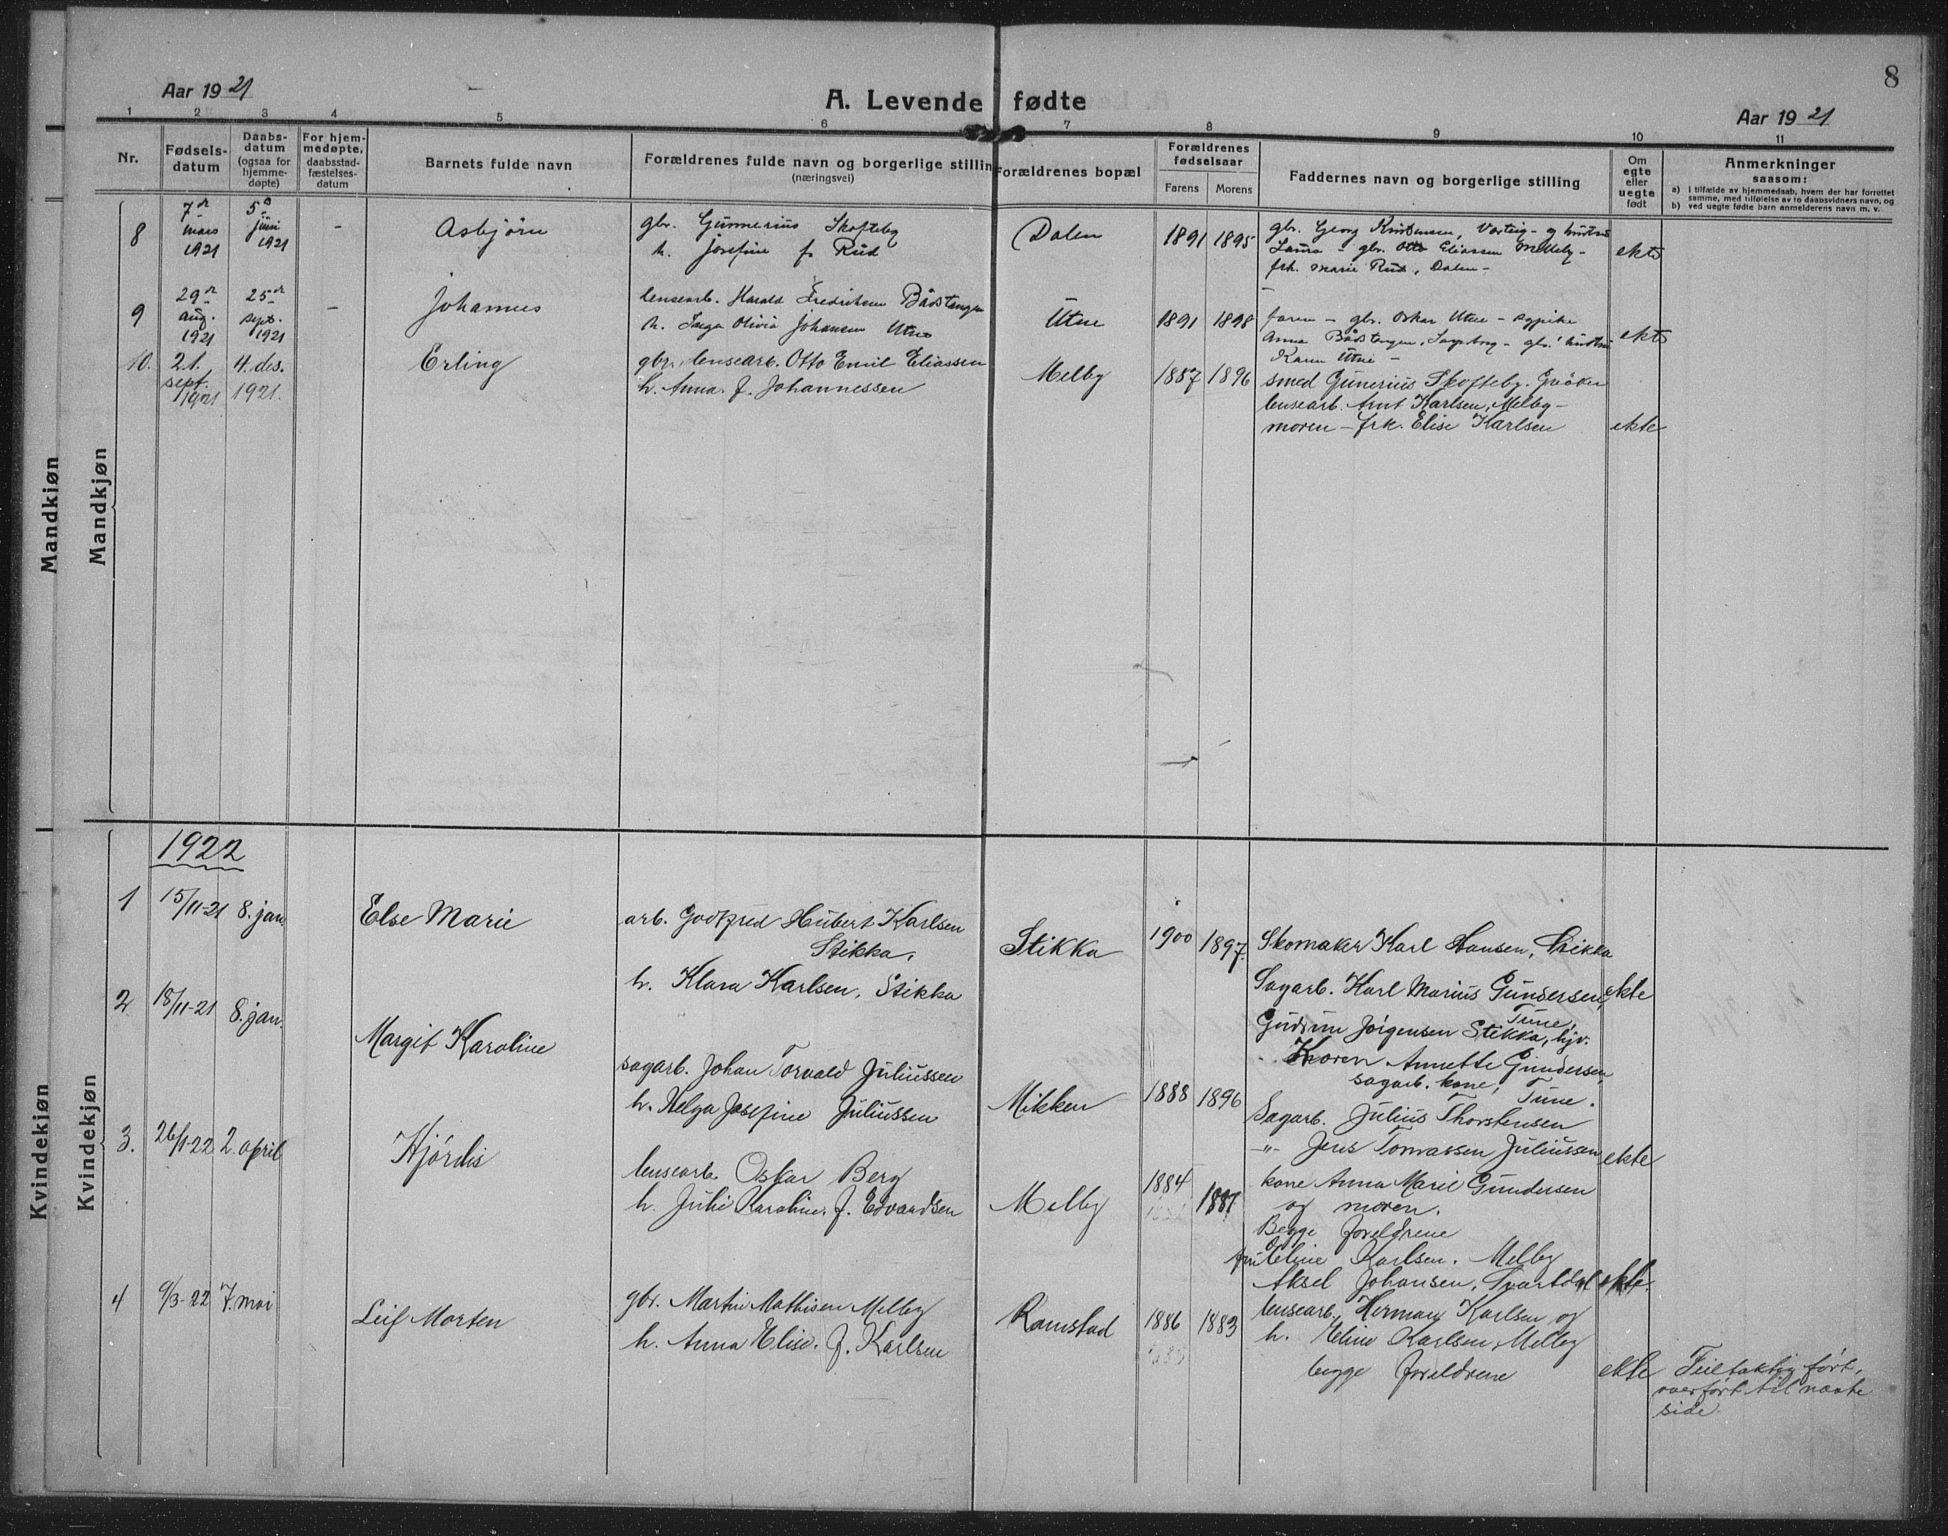 8
Aar 1921
A. Levende fødte
Aar 1921
1 2 3 4 5 6 7 8 9 10 11
Nr.
Fødselsdatum
Daabsdatum (ogsaa for hjemmedøpte)
For hjemmedøpte, daabsstadfæstelsesdatum
Barnets fulde navn
Forældrenes fulde navn og borgerlige stilling
(næringsvei)
Forældrenes bopæl
Forældrenes fødselsaar
Farens Morens
Faddernes navn og borgerlige stilling
Om egte eller uegte født
Anmerkninger
saasom:
a) I tilfælde av hjemmedaab, hvem der har forrettet
samme, med tilføielse av to daabsvidners navn, og
b) ved uegte fødte barn anmelderens navn m. v.
Mandkiøn
Mandkjøn
8
7de mars 1921
5te juni 1921
-
Asbjørn
gbr. Gunnerius Skofteby
h. Josefine f. Rud
Dalen
1891 1895
gbr. Georg Kristensen, Varteig - og hustru
Laura - gbr. Otto Eliassen Melleby -
frk. Marie Rud, Dalen -
ekte
9
29de aug. 1921
25de sept. 1921
-
Johannes
lensearb. Harald Fredriksen Bådstangen
h. Inga Olivia Johansen Utne
Utne
1891 1898
faren - gbr. Oskar Utne - sypike
Anna Bådstangen, Sarpsborg - gbr. hustru
Karen Utne -
ekte
10.
21. sept. 1921
4. des. 1921.
Erling
gbr. lensearb. Otto Emil Eliassen
h. Anna. f. Johannessen
Melby
1887 1896
smed Gunerius Skofteby. Gråker
lensearb. Arnt Karlsen, Melby -
moren - frk. Elise Karlsen
ekte
Kvindekjøn
Kvindekjøn
1922
1
15/11-21
8. jan.
Else Marie
arb. Godtfred Hubert Karlsen
Stikka,
h. Klara Karlsen, Stikka
Stikka
1900 1897.
Skomaker Karl Hansen, Stikka
Sagarb. Karl Marius Gundersen,
Tune,
Gudrun Jørgensen Stikka, hjv.
Karen Annette Gundersen,
sagarb. kone, Tune.
ekte
2
18/11-21
8. jan.
Margit Karoline
sagarb. Johan Torvald Juliussen
h. Helga Josefine Juliussen
Mikken
1888 1896
Sagarb. Julius Thorstensen
-"- Jens Tomassen Juliussen
kone Anna Marie Gundersen
og moren.
ekte
3.
26/1-22
2. april
Hjördis
lensearb. Oskar Berg
h. Julie Karoline. f. Edvardsen
Melby
1884 1887
Begge foreldrene
fru Eline Karlsen. Melby
Aksel Johansen, Svartdal
ekte.
4
9/3-22
7. mai
Leif Morten
gbr. Martin Mathisen Melby
h. Anna Elise. f. Karlsen
Ramstad
1886 1883
lensearb. Herman Karlsen og
h. Eline Karlsen, Melby
begge foreldrene
ekte
Feilaktig ført,
overført til næste
side.